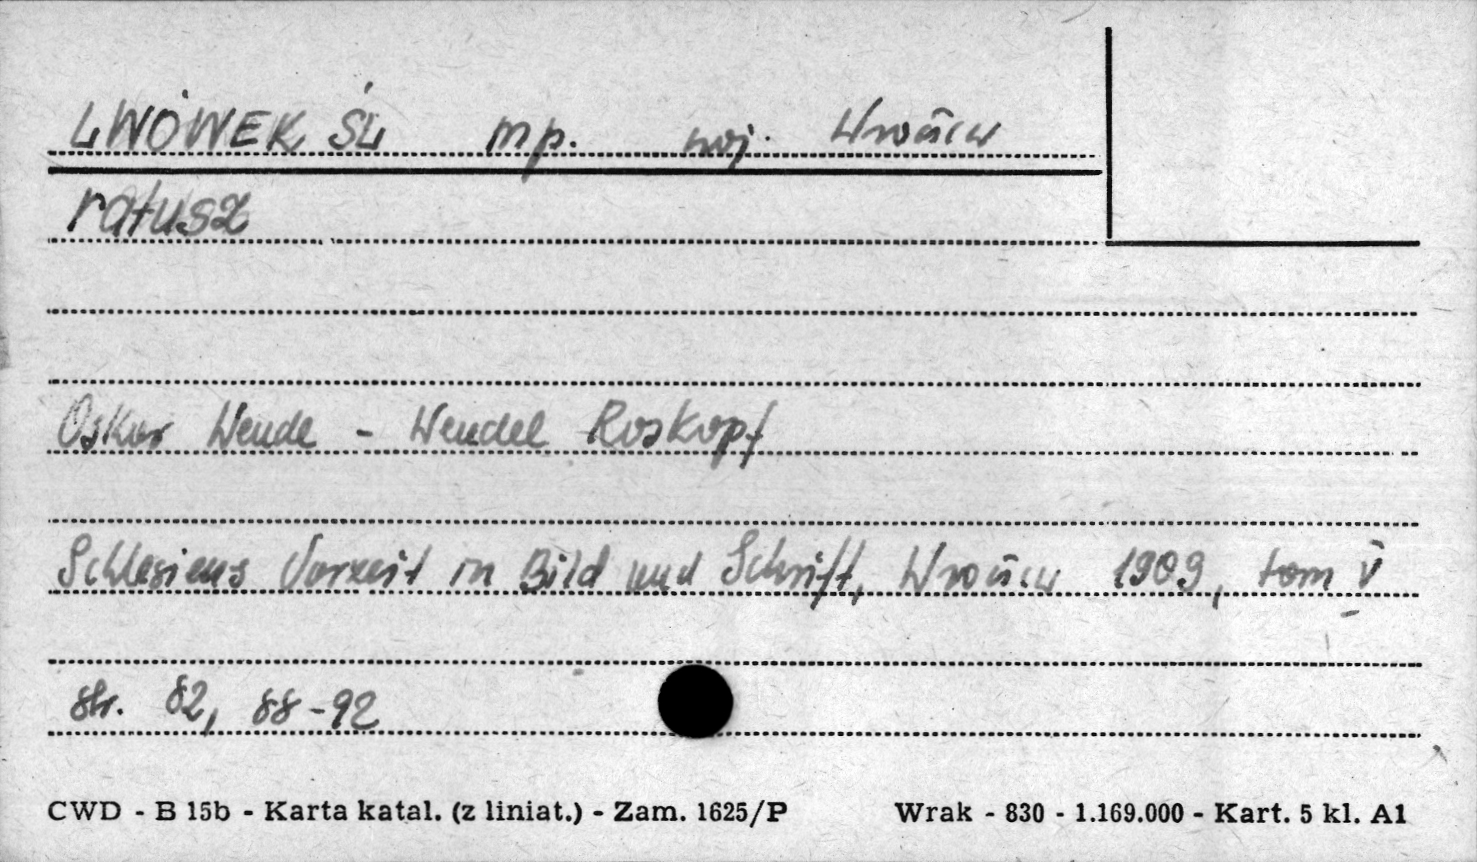 LWÓWEK ŚL mp. woj. Wrocław
ratusz
Oskar Wende - Wendel Roskopf
Schlesiens Vorzeit in Bild und Schrift, Wrocław 1909, tom V
str. 82, 88-92
CWD - B 15b - Karta katal. (z liniat.) - Zam. 1625/P Wrak - 830 - 1.169.000 - Kart. 5 kl. A1